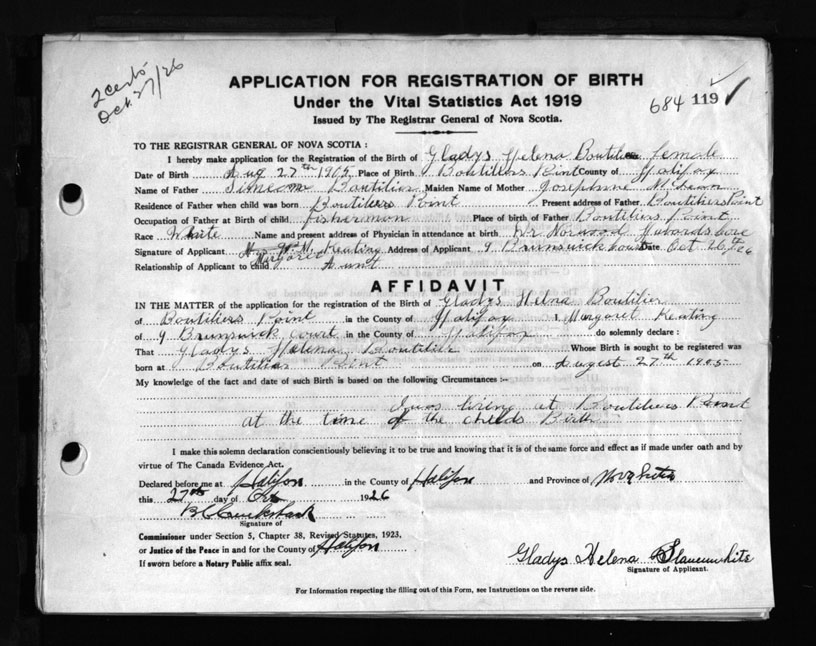 2 certs
Oct. 27/26
APPLICATION FOR REGISTRATION OF BIRTH
Under the Vital Statistics Act 1919
684 119
Issued by The Registrar General of Nova Scotia.
TO THE REGISTRAR GENERAL OF NOVA SCOTIA :
I hereby make application for the Registration of the Birth of Gladys Helena Boutilier female
Date of Birth Aug 27th 1905 Place of Birth Boutiliers Point County of Halifax
Name of Father Simeon Boutilier Maiden Name of Mother Josephine
Residence of Father when child was born Boutiliers Point Present address of Father Boutiliers Point
Occupation of Father at Birth of child fishermon Place of birth of Father Boutiliers Point
Race White Name and present address of Physician in attendance at birth Dr Norwood Hubards Cove
Signature of Applicant Mrs Keating Address of Applicant 9 Brunswick Court Date Oct 26th/26
Margaret
Relationship of Applicant to child Aunt
AFFIDAVIT
IN THE MATTER of the application for the registration of the Birth of Gladys Helna Boutilier
of Boutiliers Point in the County of Halifax I, Margaret Keating
of 9 Brunswick Court in the County of Halifax do solemnly declare :
That Gladys Helena Boutilier Whose Birth is sought to be registered was
born at Boutiliers Point on Augest 27th 1905
My knowledge of the fact and date of such Birth is based on the following Circumstances :-
I was living at Boutiliers Point
at the time of the childs Birth
I make this solemn declaration conscientiously believing it to be true and knowing that it is of the same force and effect as if made under oath and by
virtue of The Canada Evidence Act.
Declared before me at Halifax in the County of Halifax and Province of Nova Scotia
this 27th day of Oct 1926
Signature of
Commissioner under Section 5, Chapter 38, Revised Statutes, 1923,
or Justice of the Peace in and for the County of Halifax
Gladys Helena Slaunwhite
If sworn before a Notary Public affix seal.
Signature of Applicant.
For Information respecting the filling out of this Form, see Instructions on the reverse side.